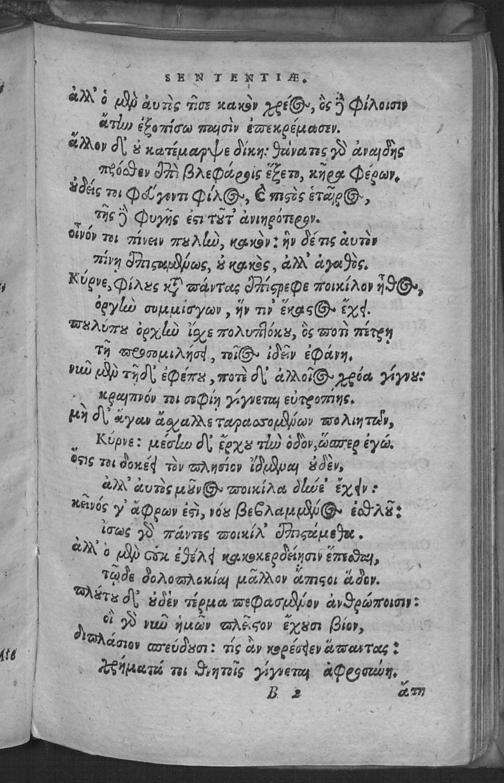 SENTENTIÆ.
ἀλλ' ὁ μὲν ἀυτὸς τῖσε κακὸν χρέος, ὃς ἢ φίλοισιν
ἄτην ἐξοπίσω παισὶν ἐπεκρέμασεν.
ἄλλον δ' ου κατέμαρψε δίκη: θάνατος γὸ ἀναιδὴς
πρόσθεν ἐπὶ βλεφάροις ἕζετο, κῆρα φέρων.
ὐδείς τοι φεύγοντι φίλος, ἐ πιστὸς ἑταῖρος,
τῆς ἢ φυγῆς ἐστι τοῦτ' ἀνιηρότερον.
οἶνόν τοι πίνειν πουλὺν, κακόν: ἢν δέ τις ἀυτὸν
πίνῃ ἐπισταμένως, ου κακὸς, ἀλλ' ἀγαθός.
Κύρνε, φίλους κτ πάντας ἐπίστρεφε ποικίλον ἦθος,
ὀργὴν συμμίσγων, ἥν τιν' ἕκαστος ἔχει.
πουλύπου ὀργὴν ἴσχε πολυπλόκου, ὃς ποτὶ πέτρῃ
τῇ προσομιλήσει, τοῖος ἰδεῖν ἐφάνη.
νῦν μὲν τῇ δ' ἐφέπου, ποτὲ δ' ἀλλοῖος χρόα γίγνου:
κραιπνόν τοι σοφίη γίγνεται εὐτροπίης.
μὴ δ' ἄγαν ἄσχαλλε ταρασσομένων πολιητῶν,
Κύρνε: μέσην δ' ἔρχου τὴν ὁδὸν, ὥσπερ ἐγώ.
ὅστις τοι δοκέει τὸν πλησίον ἴδμεναι οὐδὲν,
ἀλλ' αὐτὸς μοῦνος ποικίλα δήνε' ἔχειν:
κεῖνός γ' ἄφρων ἐστὶ, νόου βεβλαμμένος ἐσθλοῦ:
ἴσως γὸ πάντες ποικίλ' ἐπιστάμεθα.
ἀλλ' ὁ μὲν οὐκ ἐθέλει κακοκερδείῃσιν ἕπεσθαι,
τῷδε δολοπλοκίαι μᾶλλον ἄπιστοι ἅδον.
πλούτου δ' οὐδὲν τέρμα πεφασμένον ἀνθρώποισιν:
οἳ γὸ νῦν ἡμῶν πλεῖστον ἔχουσι βίον,
διπλάσιον σπεύδουσι: τίς ἂν κορέσειεν ἅπαντας:
χρήματά τοι θνητοῖς γίγνεται ἀφροσύνη.
B 2 ἄτη